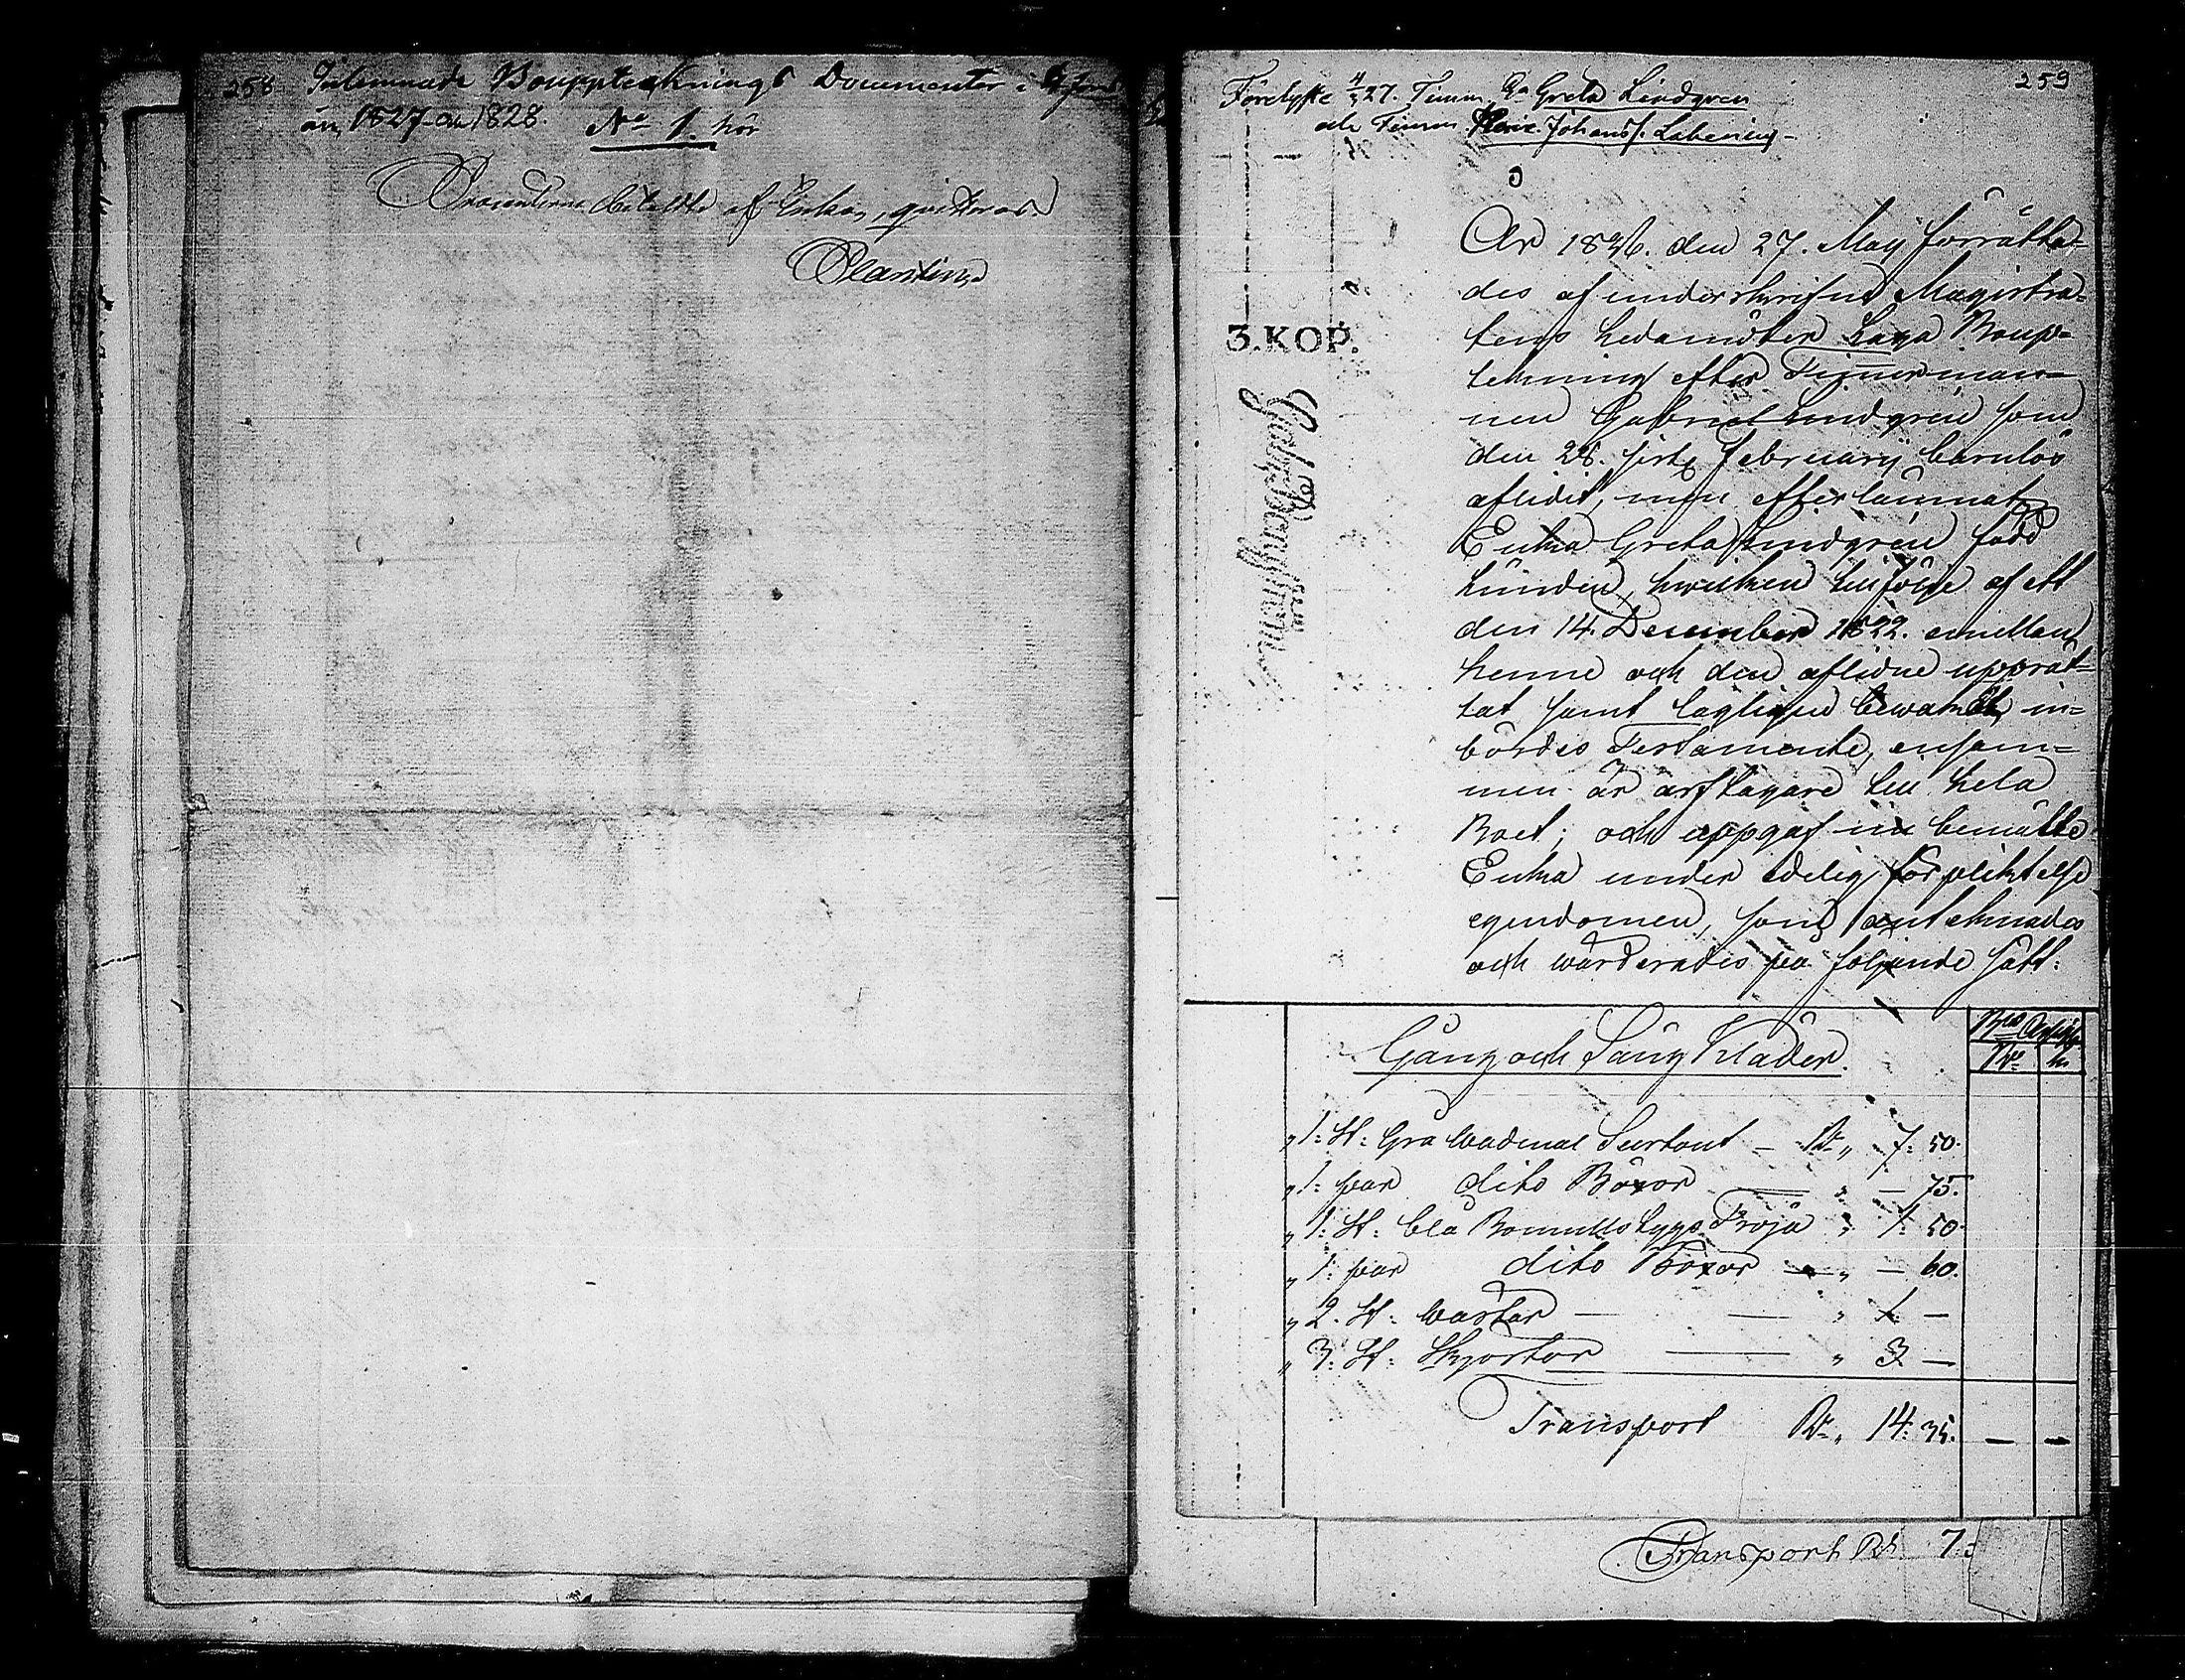 258 Inlemnade Bouppteknings Documenter i
åren 1827 och 1828. No 1. hör
Procenterne betaldte af Enkan, qvitteras
Plantin
259
Företedt 4/3 27. Timm. Ea Greta Lindgren
och Timm. Johanss.
3. KOP.
År 1826. den 27. Maij förrätta-
des af underskrifne Magistra-
tens Ledamöter Laga Boup-
tekning efter Timmerman-
nen Gabriel Lindgren som
den 28. sistl. February barnlös
aflidit, men efterlämnat
Enka Greta Lindgren född
Lindén, hvilken till följe af ett
den 14. December 1822. emellan
henne och den aflidne upprät-
tat samt lagligen bewakat in-
bördes Testamente, ensam-
men är arftagare till hela
Boet; och uppgaf nu bemälte
Enka under edelig förpliktelse
egendomen, som antecknades
och wärderades på följande sätt:
Gång och Säng Kläder.
Bco Rd. k.
" 1: St: Grå Wadmal Surtout — Rd " 7: 50.
" 1: par dito Böxor — " — 75.
" 1: St: blå Bomullstygs Tröja " 1: 50.
" 1: par dito Böxor — " — 60.
" 2. St: Wästar — — " 1. —
" 3: St: Skjortor — " 3 —
Transport Rd " 14: 35. — —
Transport Rd. 7: